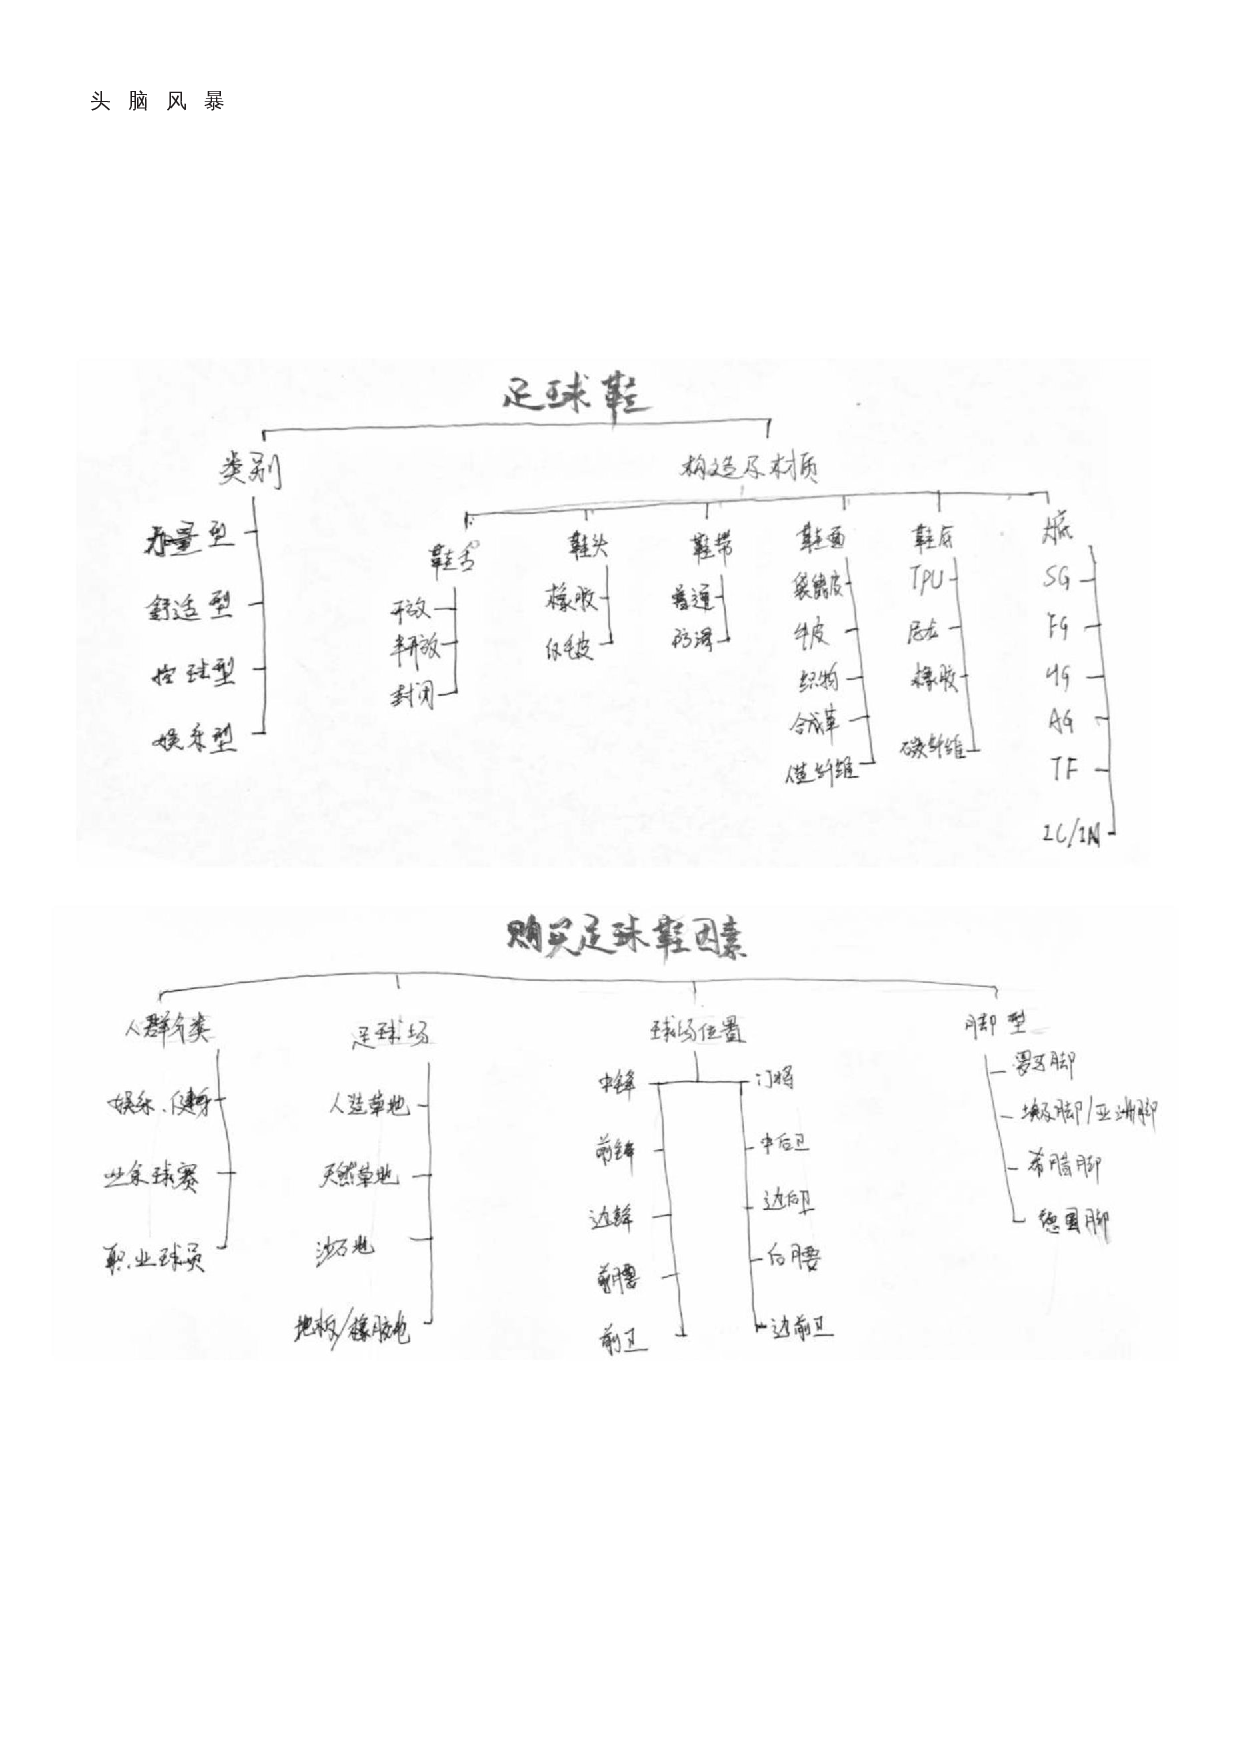 头脑风暴
足球鞋
类别
构造及材质
舒适型
控球型
娱乐型
鞋舌
开放
半开放
封闭
鞋头
橡胶
仿毛皮
鞋带
普通
防滑
鞋面
袋鼠皮
牛皮
织物
合成革
人造纤维
鞋底
TPU
尼龙
橡胶
碳纤维
大底
SG
FG
HG
AG
TF
IC/IN
购买足球鞋因素
人群分类
娱乐、健身
业余球赛
职业球员
足球场
人造草地
天然草地
沙石地
地板/橡胶地
球场位置
中锋
前锋
边锋
前腰
前卫
门将
中后卫
边后卫
后腰
边前卫
脚型
罗马脚
埃及脚/亚洲脚
希腊脚
德国脚